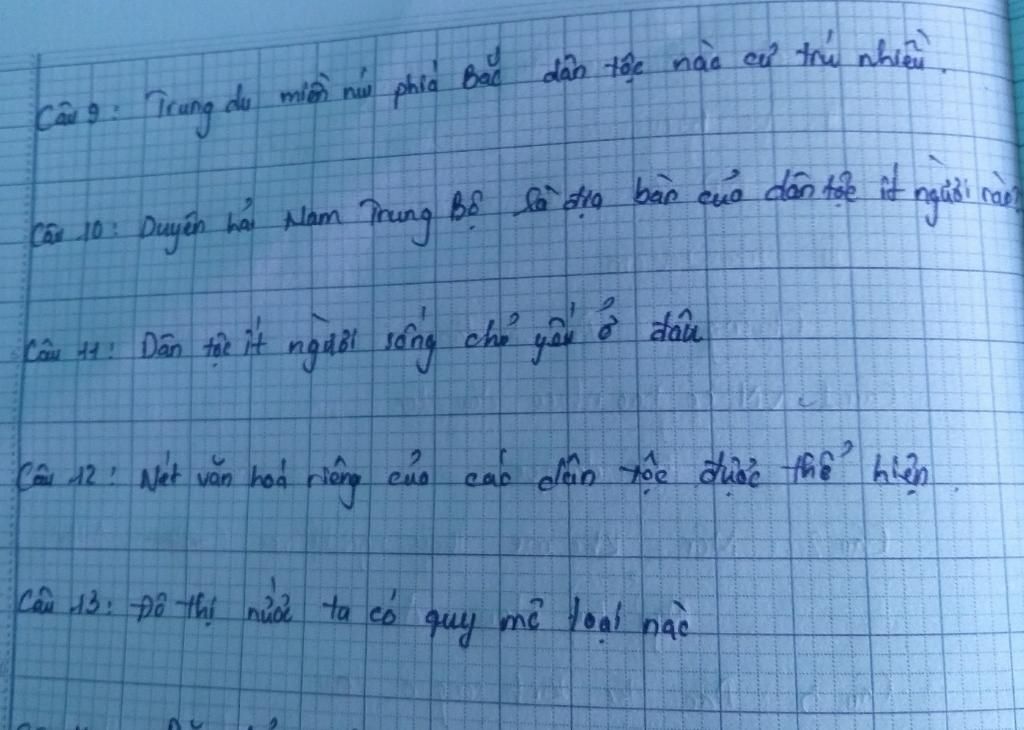 Câu 9: Trung du miền núi phía Bắc dân tộc nào cư trú nhiều.
Câu 10: Duyên hải Nam Trung Bộ là địa bàn của dân tộc ít người nào?
Câu 11: Dân tộc ít người sống chủ yếu ở đâu
Câu 12: Nét văn hoá riêng của các dân tộc được thể hiện.
Câu 13: Đô thị nước ta có quy mô loại nào